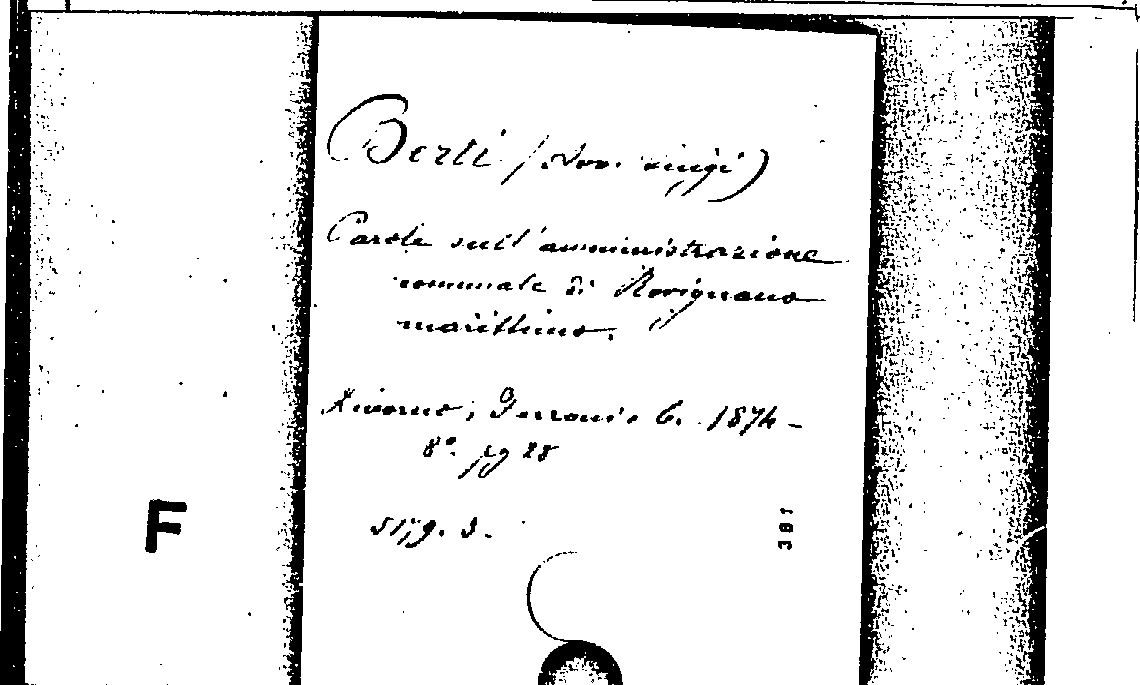 Berti (Avv. Luigi)
Parole sull'amministrazione
comunale di Rosignano
marittimo.
Livorno, 6. 1874 -
8°. pg 28
F
381